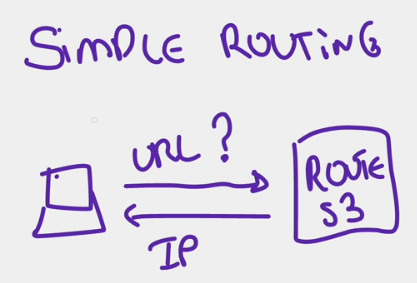 SIMPLE ROUTING
URL ?
ROUTE
53
IP